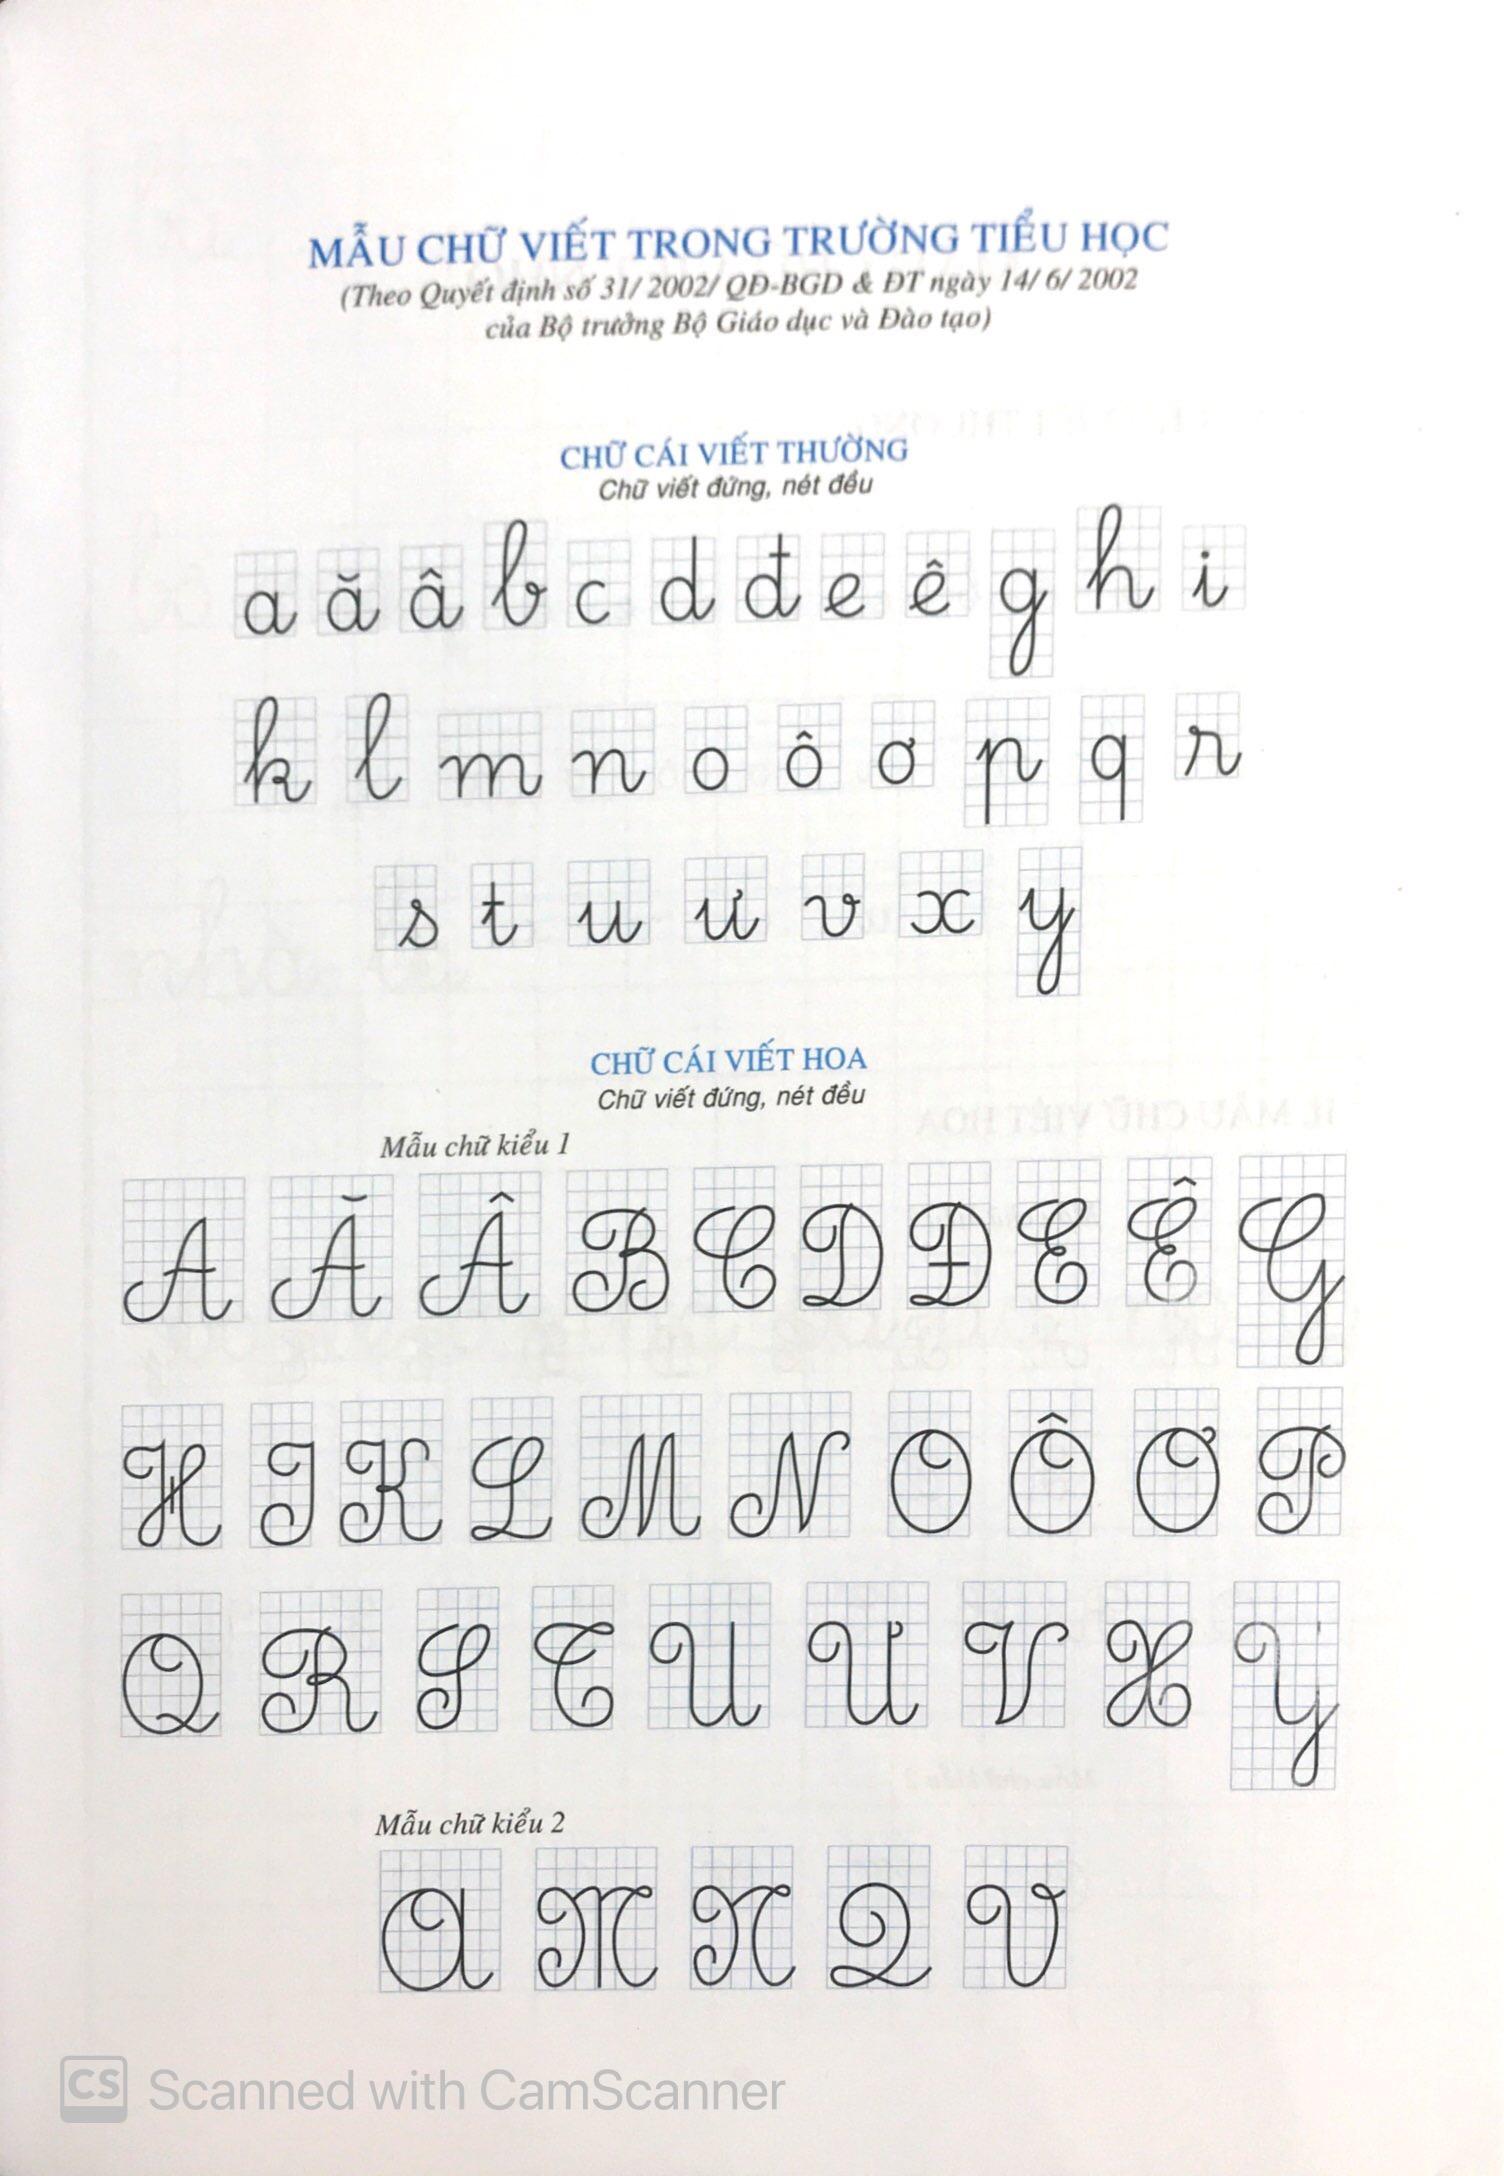 MẪU CHỮ VIẾT TRONG TRƯỜNG TIỂU HỌC
(Theo Quyết định số 31/ 2002/ QĐ-BGD & ĐT ngày 14/ 6/ 2002
của Bộ trưởng Bộ Giáo dục và Đào tạo)
CHỮ CÁI VIẾT THƯỜNG
Chữ viết đứng, nét đều
a ă â b c d đ e ê g h i
k l m n o ô ơ p q r
s t u ư v x y
CHỮ CÁI VIẾT HOA
Chữ viết đứng, nét đều
Mẫu chữ kiểu 1
A Ă Â B C D Đ E Ê G
H I K L M N O Ô Ơ P
Q R S T U Ư V X Y
Mẫu chữ kiểu 2
A M N Q V
CS Scanned with CamScanner